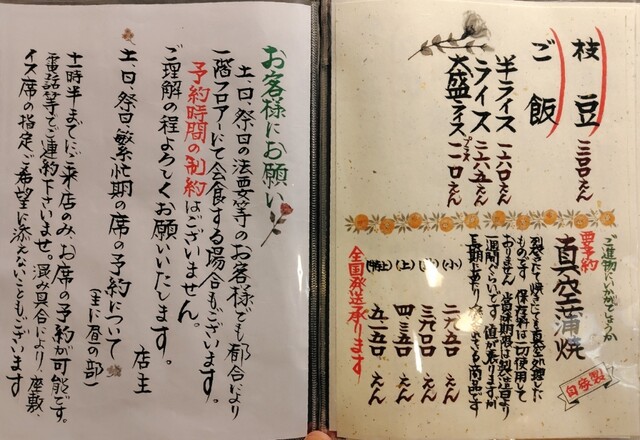 枝豆 三〇〇えん
ご飯
半ライス 一六〇えん
ライス 二六五えん
大盛ライス プラス 一一〇えん
ご進物にいかがでしょうか
要予約
真空蒲焼
自家製
割きたて焼きたてを真空処理した
ものです 保存料は一切使用して
おりません 賞味期限は製造日より
一週間ぐらいです 値が張りますが
長期
商品です
(小) 二九五〇えん
三九〇〇えん
(上) 四三五〇えん
(特上) 五一五〇えん
全国発送承ります
お客様にお願い
土、日、祭日の法要等のお客様でも都合により
一階フロアーにて会食する場合もございます。
予約時間の制約はございません。
ご理解の程よろしくお願いいたします。
店主
土、日、祭日、繁忙期の席の予約について
(主に昼の部)
十一時半までにご来店のみ、お席の予約が可能です。
電話等でご連絡下さいませ。混み具合により、座敷、
イス席の指定、ご希望に添えないこともございます